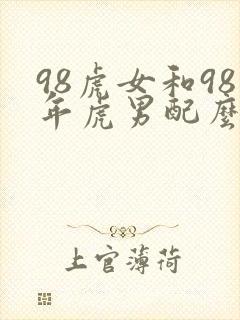 98虎女和98
年虎男配麼
上官薄荷